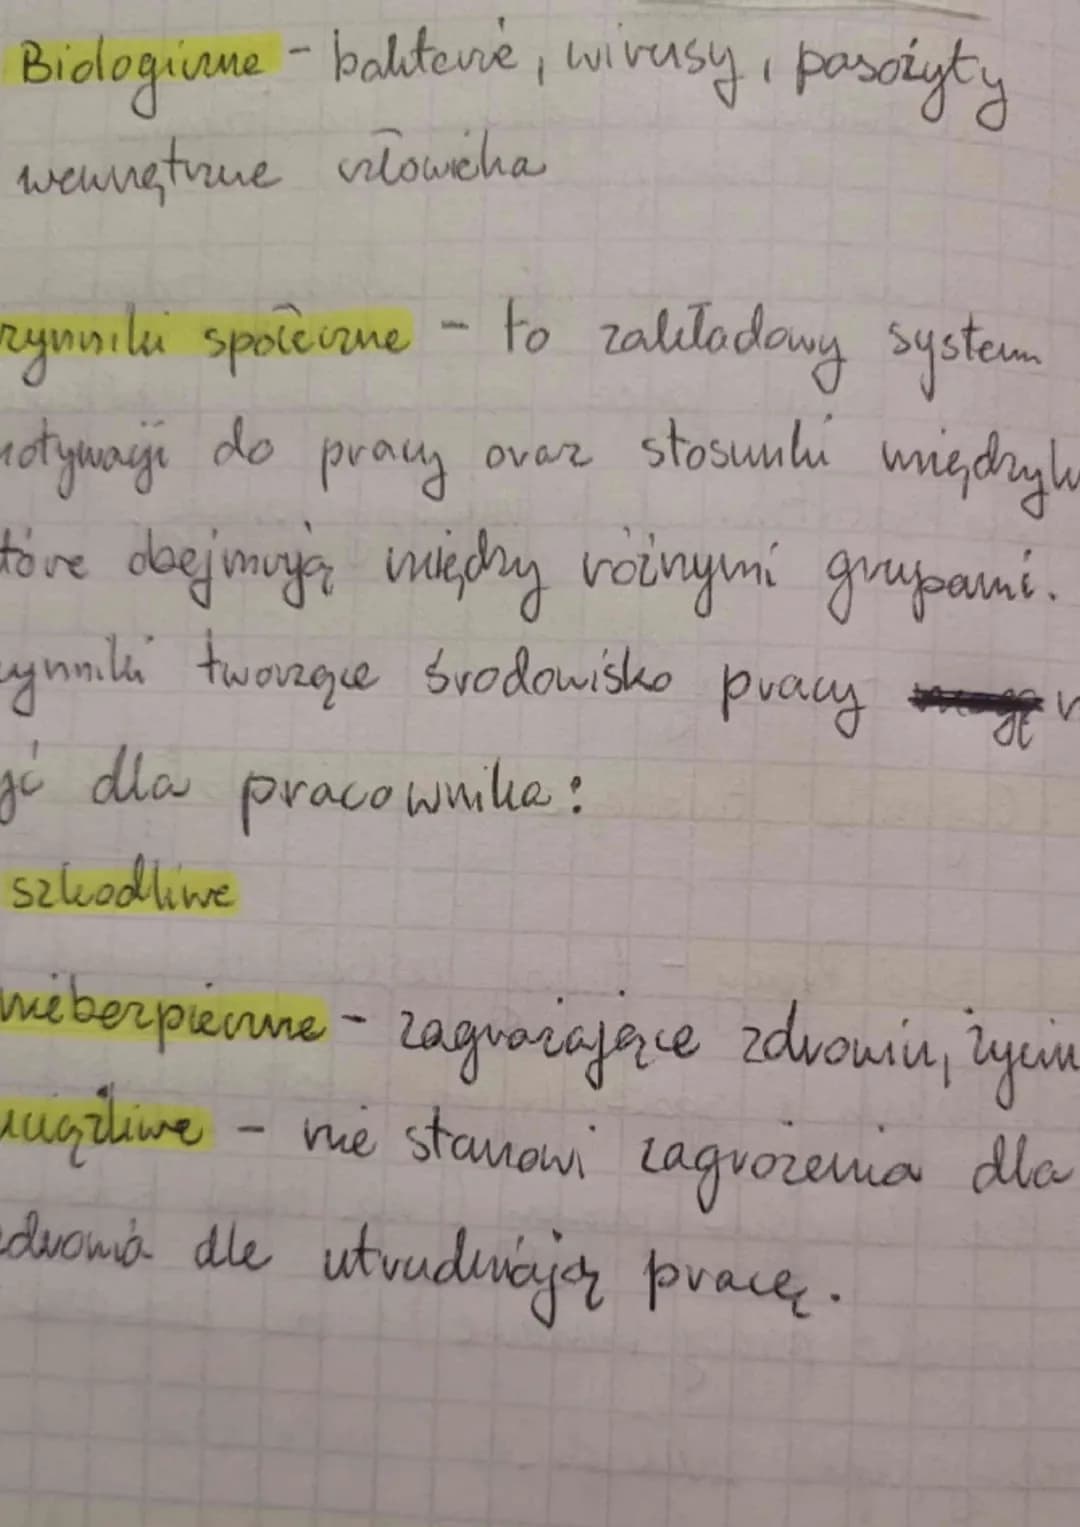 Biologiczne - bakterie, wirusy, pasożyty
wewnętrzne człowieka
zynniki społeczne - to zakładowy system
motywacji do pracy oraz stosunki międzylu
tóre obejmują między różnymi grupami.
zynniki tworzące środowisko pracy
yć dla pracownika:
szkodliwe
niebezpieczne - zagrażające zdrowiu, życiu
uciążliwe - nie stanowi zagrożenia dla
zdrowia ale utrudniają pracę.